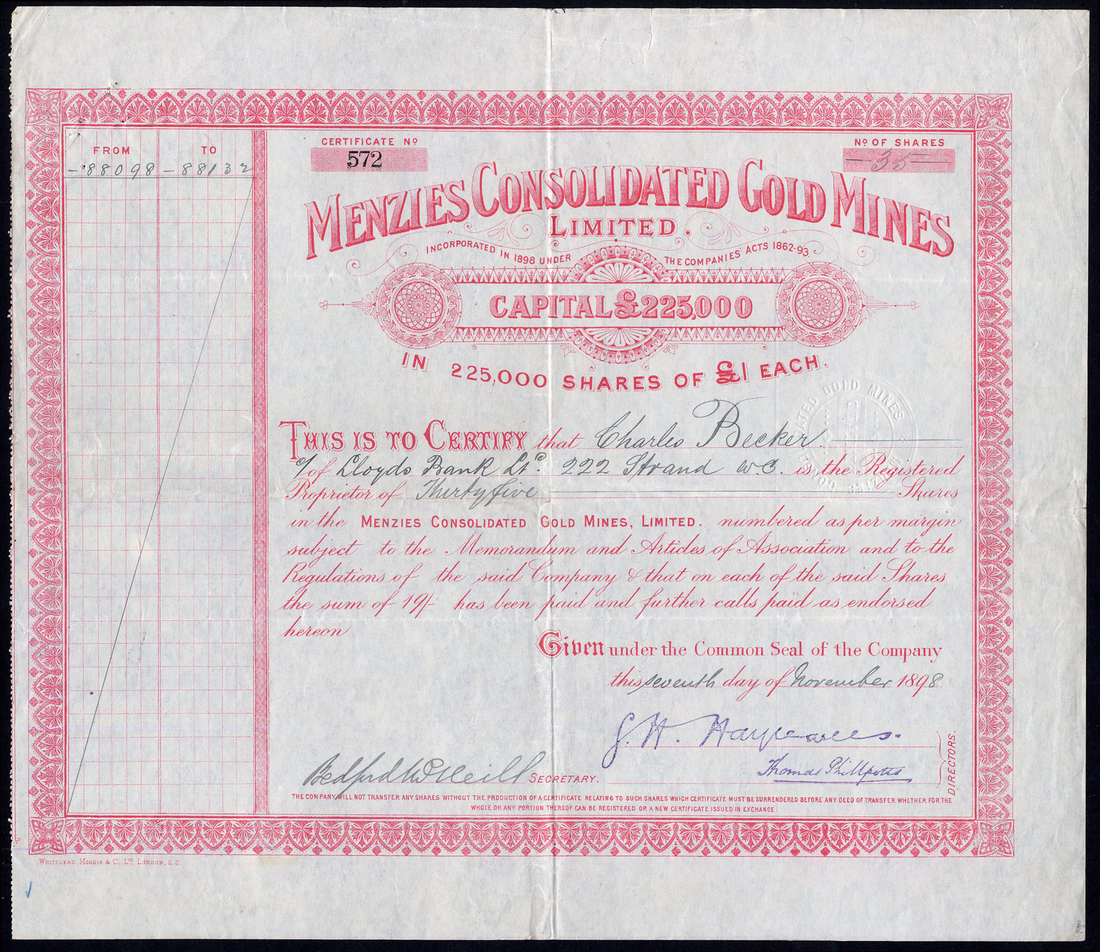 FROM TO
-88098 -88132
CERTIFICATE Nº
572
Nº OF SHARES
-35-
MENZIES CONSOLIDATED GOLD MINES
LIMITED.
INCORPORATED IN 1898 UNDER THE COMPANIES ACTS 1862-93
CAPITAL £225,000
IN 225,000 SHARES OF £1 EACH.
THIS IS TO CERTIFY that Charles Becker
c/o of Lloyds Bank Ltd. 222 Strand W.C. is the Registered
Proprietor of Thirty five Shares
in the MENZIES CONSOLIDATED GOLD MINES, LIMITED. numbered as per margin
subject to the Memorandum and Articles of Association and to the
Regulations of the said Company & that on each of the said Shares
the sum of 19/- has been paid and further calls paid as endorsed
hereon
Given under the Common Seal of the Company
this seventh day of November 1898
G. H.
Thomas Phillpotts
DIRECTORS.
Bedford McNeill SECRETARY.
THE COMPANY WILL NOT TRANSFER ANY SHARES WITHOUT THE PRODUCTION OF A CERTIFICATE RELATING TO SUCH SHARES WHICH CERTIFICATE MUST BE SURRENDERED BEFORE ANY DEED OF TRANSFER WHETHER FOR THE
WHOLE OR ANY PORTION THEREOF CAN BE REGISTERED OR A NEW CERTIFICATE ISSUED IN EXCHANGE
WHITEHEAD, MORRIS & C. LTD. LONDON, E.C.
GOLD MINES